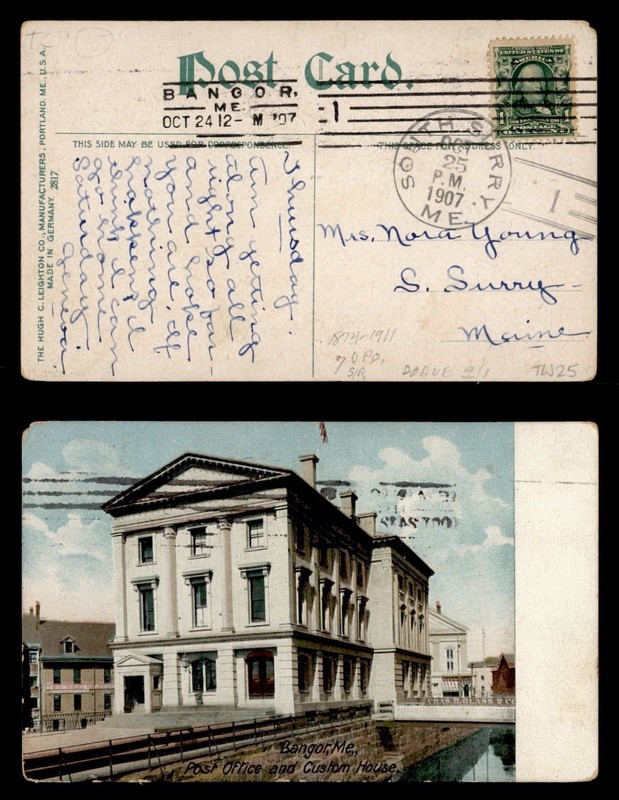 Post Card.
BANGOR,
ME.
OCT 24 12- M '07
1
THIS SIDE MAY BE USED FOR CORRESPONDENCE.
THIS SPACE FOR ADDRESS ONLY.
SERIES 1902
UNITED STATES OF
AMERICA
POSTAGE
SOUTH SURRY
25
P.M.
1907
ME.
1
THE HUGH C. LEIGHTON CO., MANUFACTURERS, PORTLAND, ME., U.S.A.
MADE IN GERMANY. 2817
Thursday.
Am getting
along all
right so far
and hope
you are. If
nothing
happens
think I can
go home
Saturday.
Geneva.
Mrs. Nora Young
S. Surry-
Maine
1874-1911
7 DPO,
S/R
DOANE 2/1
TW25
CHAS. H. GLASS & CO.
Bangor, Me.,
Post Office and Custom House.